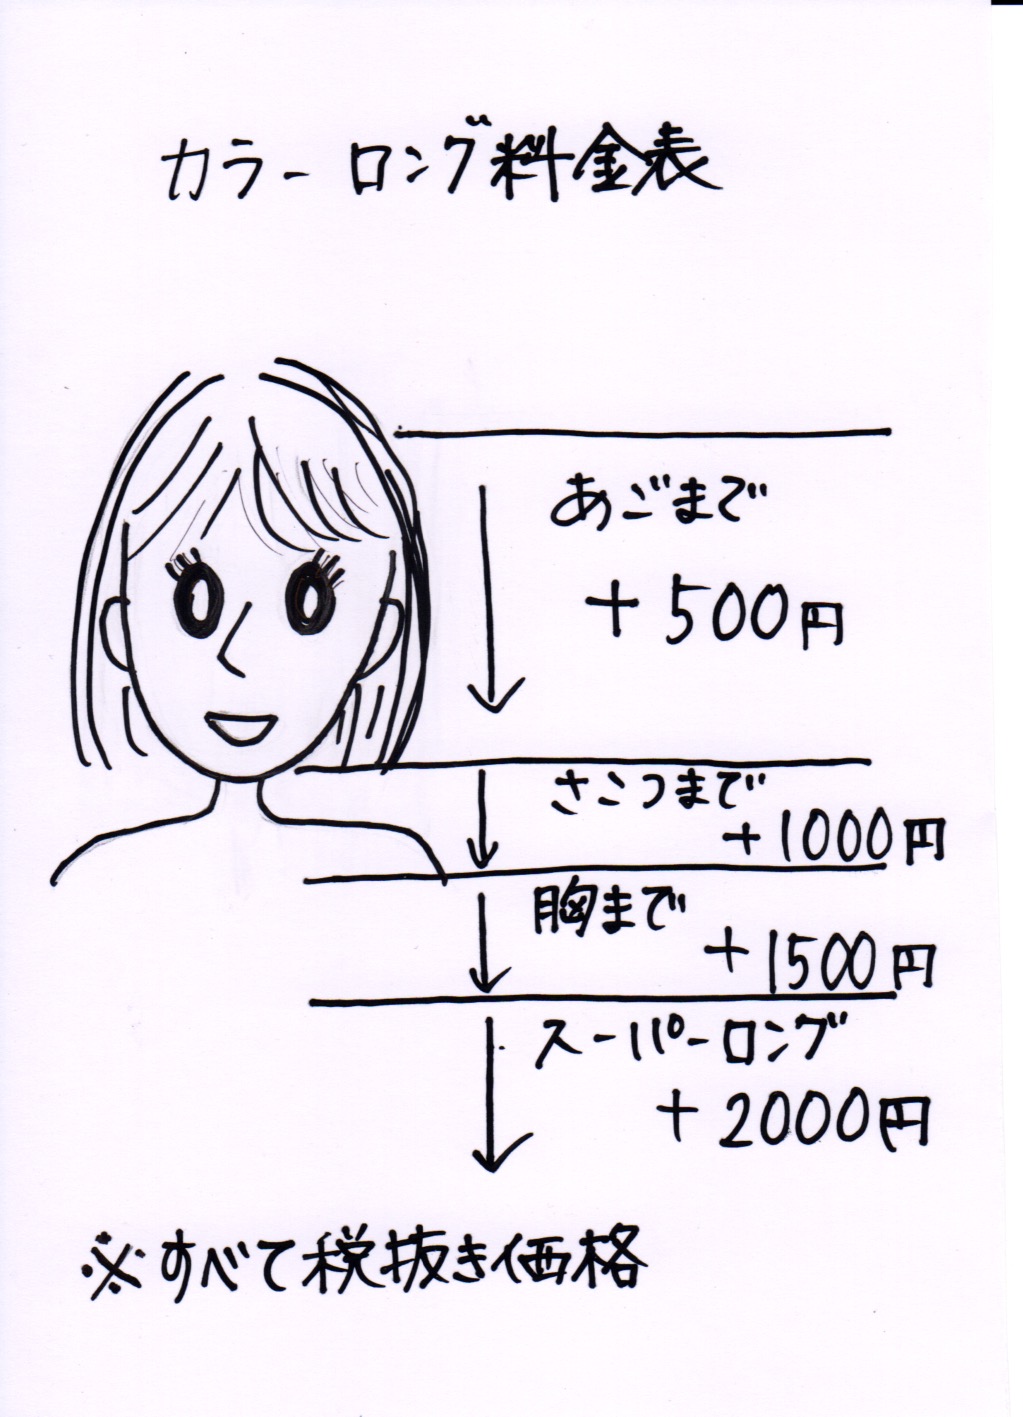 カラーロング料金表
あごまで
+500円
さこつまで
+1000円
胸まで
+1500円
スーパーロング
+2000円
※すべて税抜き価格